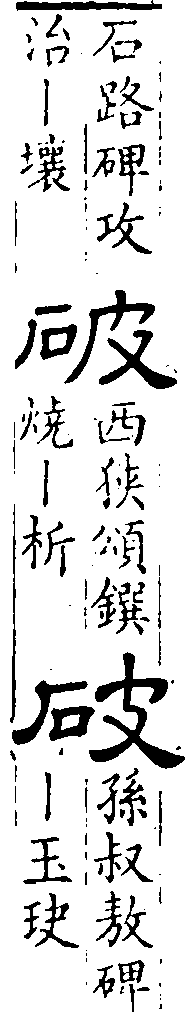 石路碑攻
治丨壞
破
西狹頌鐉
燒丨析
破
孫叔敖碑
丨玉玦